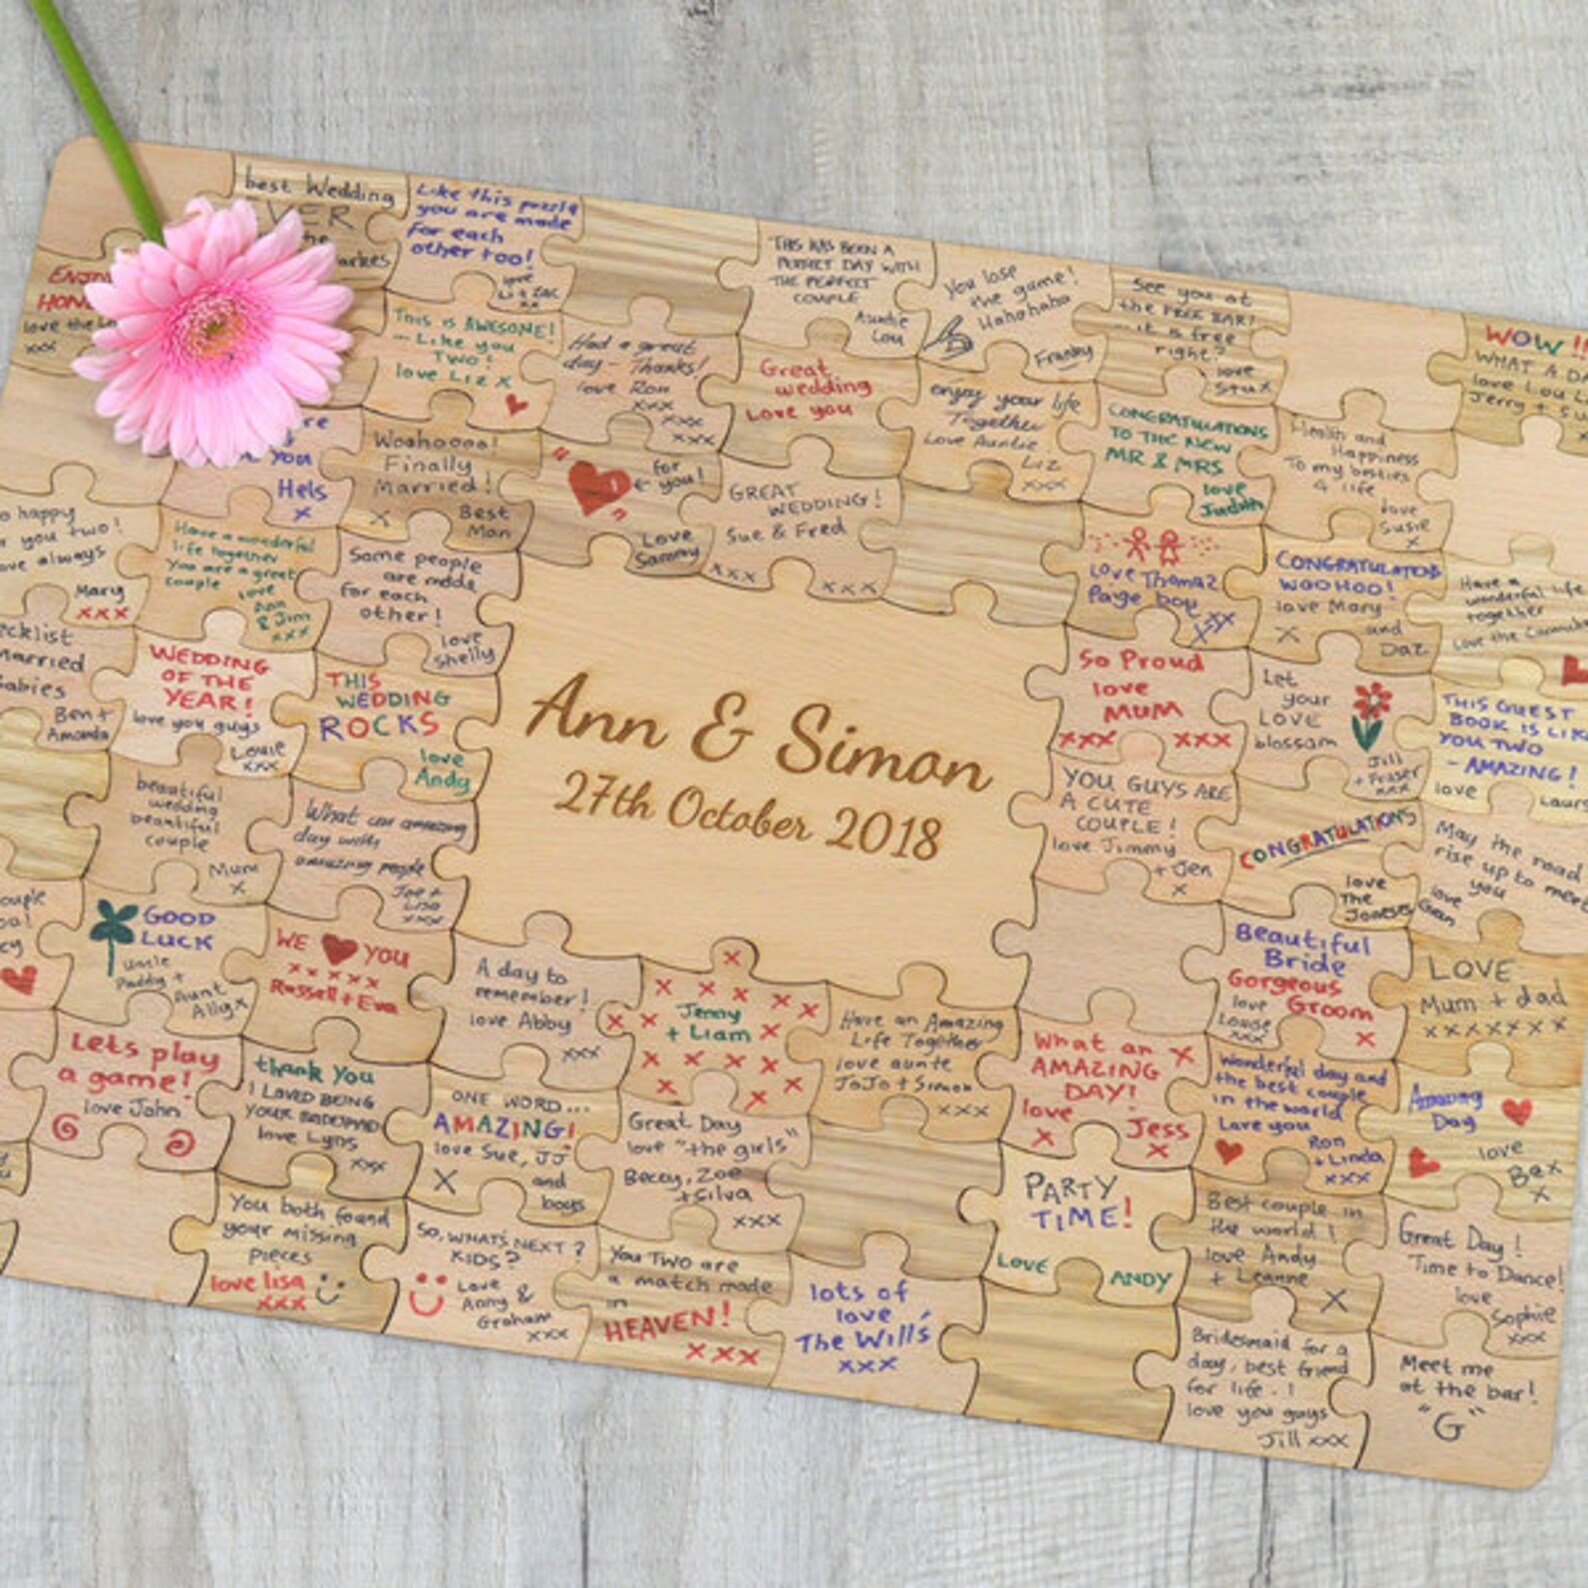 best Wedding
EVER
Like this puzzle
you are made
for each
other too!
love
THIS HAS BEEN A
PERFECT DAY WITH
THE PERFECT
COUPLE
Auntie
Lou
You lose
the game!
Hahahaha
Franky
See you at
the FREE BAR!
it is free
right?
love
Stu x
WOW
WHAT A
love Lou
Jerry +
love the
xxx
THIS is AWESOME!
- Like you
TWO!
love Liz x
Had a great
day - Thanks!
love Ron
xxx
xxx
xxx
Great
wedding
Love you
enjoy your life
Together
Love Auntie
Liz
xxx
CONGRATULATIONS
TO THE NEW
MR & MRS
love
Judith
Health and
Happiness
To my besties
4 life
love
Susie
x
you
Hels
x
Woohoooo!
Finally
Married!
x Best
Man
for
you!
Love
Sammy
GREAT
WEDDING!
Sue & Fred
xxx xxx
love Thomaz
Page boy
xx
CONGRATULATIONS
WOOHOO!
love Mary
x and
Daz
Have a
wonderful life
together
Love the
happy
you two!
always
Mary
xxx
Have a wonderful
life together
You are a great
couple
love
Ann
& Jim
xxx
Some people
are made
for each
other!
love
Shelly
Married
Babies
Ben +
Amanda
WEDDING
OF THE
YEAR!
love you guys
Louie
xxx
THIS
WEDDING
ROCKS
love
Andy
Ann & Simon
27th October 2018
So Proud
love
MUM
xxx xxx
Let
your
LOVE
blossom
Jill
+ Fraser
xxx
THIS GUEST
BOOK IS LIKE
YOU TWO
- AMAZING!
love
beautiful
wedding
beautiful
couple
Mum
x
What an amazing
day with
amazing people
Joe +
Lisa
xxx
YOU GUYS ARE
A CUTE
COUPLE!
love Jimmy
+ Jen
x
CONGRATULATIONS
love
The
Joneses
May the road
rise up to meet
you
love
Gran
GOOD
LUCK
Uncle
Paddy +
Aunt
Ally x
WE YOU
xxxxx
Russell + Eva
A day to
remember!
love Abby
xxx
Jenny
+ Liam
Have an Amazing
Life Together
love aunte
JoJo + Simon
xxx
Beautiful
Bride
Gorgeous
Groom
love
Louise
xxx
x
LOVE
Mum + dad
xxxxxxx
Lets play
a game!
love John
thank you
I LOVED BEING
YOUR BRIDESMAID
love Lyns
xxx
ONE WORD...
AMAZING!
love Sue, JJ
x and
boys
Great Day
love "the girls"
Becky, Zoe
+ Silva
xxx
What an x
AMAZING
DAY!
love
x Jess
x
Wonderful day and
the best couple
in the world
Love you
Ron
+ Linda
xxx
Amazing
Day
love
Bex
x
You both found
your missing
pieces
love lisa
xxx
So, WHATS NEXT?
KIDS?
Love
Anny &
Graham
xxx
You Two are
a match made
in
HEAVEN!
xxx
lots of
love
The Will's
xxx
PARTY
TIME!
LOVE ANDY
Best couple in
the world!
love Andy
+ Leanne
x
Great Day!
Time to Dance!
love
Sophie
xxx
Bridesmaid for a
day, best friend
for life.!
love you guys
Jill xxx
Meet me
at the bar!
"G"